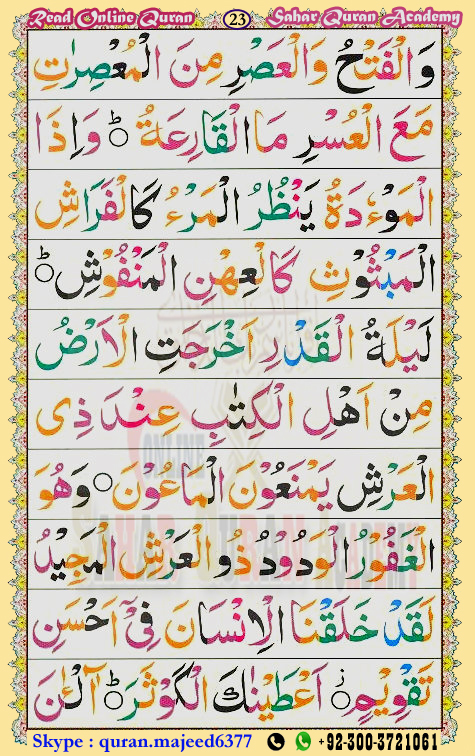 Read Online Quran 23 Sahar Quran Academy
وَالْفَتْحُ وَالْعَصْرِ مِنَ الْمُعْصِرٰتِ
مَعَ الْعُسْرِ مَا الْقَارِعَةُ ؕ وَاِذَا
الْمَوْءٗدَةُ يَنْظُرُ الْمَرْءُ كَالْفَرَاشِ
الْمَبْثُوْثِ كَالْعِهْنِ الْمَنْفُوْشِ ؕ
لَيْلَةُ الْقَدْرِ اَخْرَجَتِ الْاَرْضُ
مِنْ اَهْلِ الْكِتٰبِ عِنْدَ ذِى
الْعَرْشِ يَمْنَعُوْنَ الْمَاعُوْنَ ۝ وَهُوَ
الْغَفُوْرُ الْوَدُوْدُ ذُو الْعَرْشِ الْمَجِيْدُ
لَقَدْ خَلَقْنَا الْاِنْسَانَ فِىْۤ اَحْسَنِ
تَقْوِيْمٍ ۝ اَعْطَيْنٰكَ الْكَوْثَرَ ؕ آلْـٰٔنَ
Skype : quran.majeed6377 +92-300-3721061